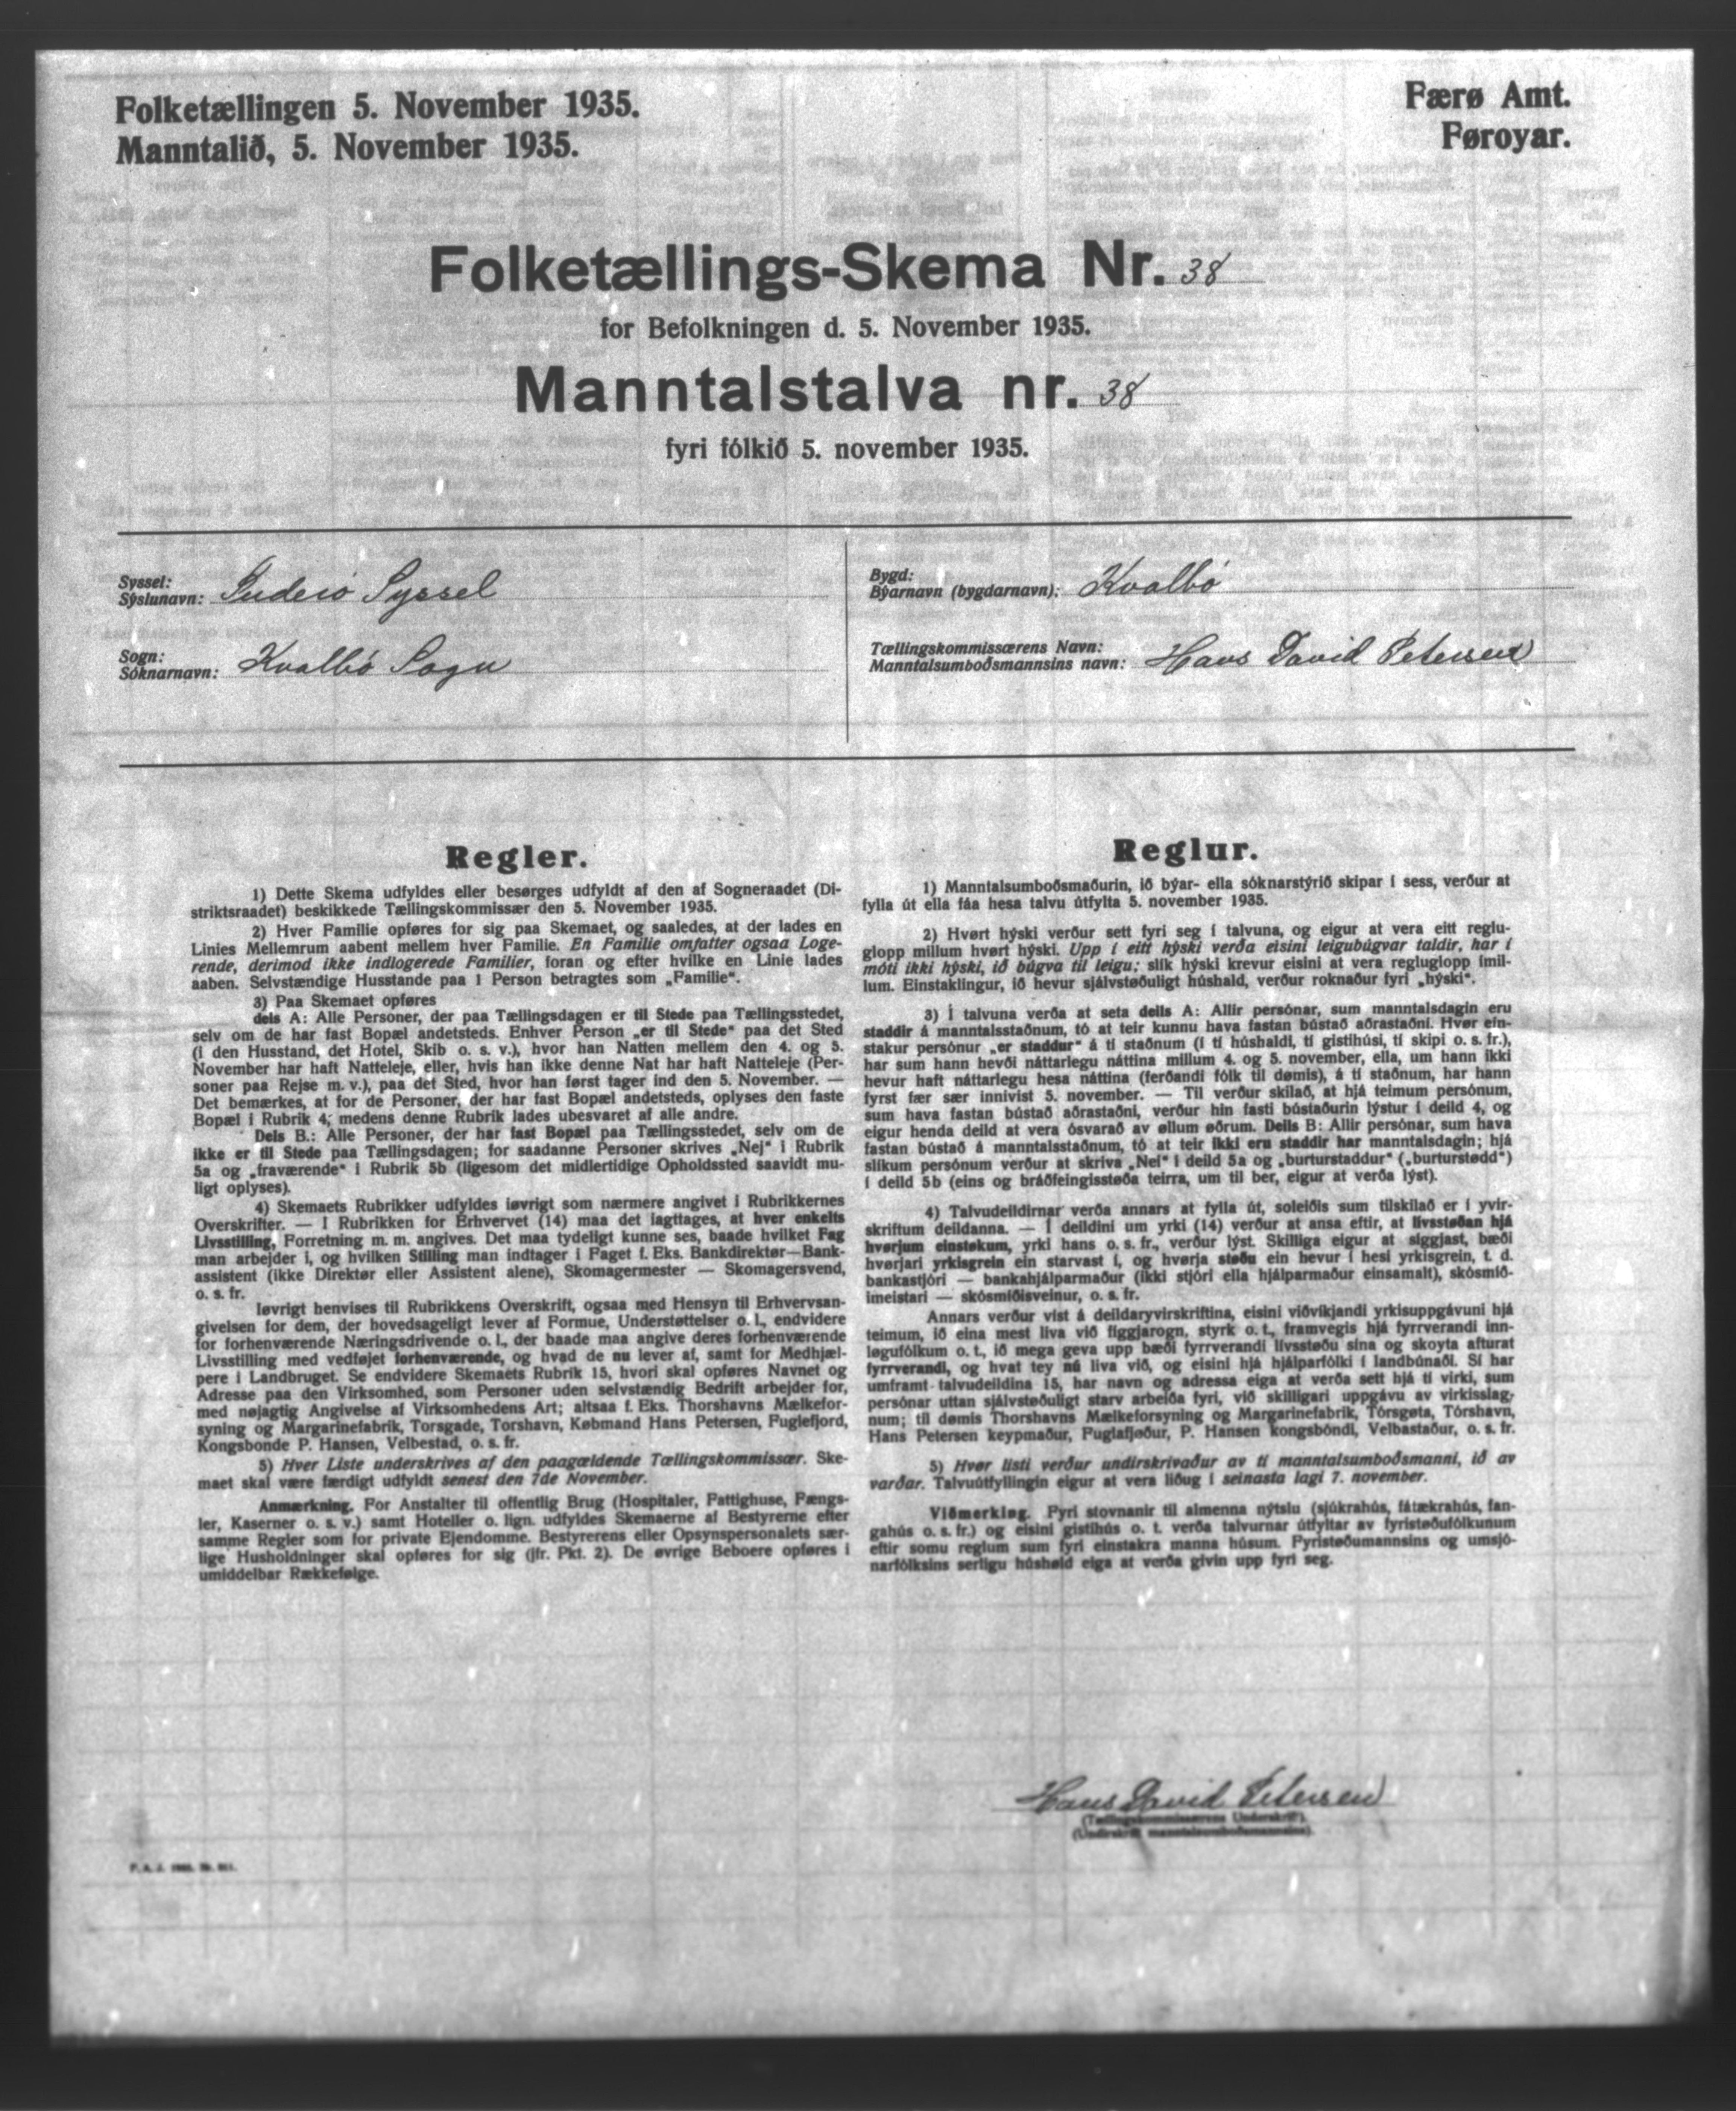 Folketællingen 5. November 1935.
Manntalið, 5. November 1935.
Færø Amt.
Føroyar.
Folketællings-Skema Nr. 38
for Befolkningen d. 5. November 1935.
Manntalstalva nr. 38
fyri fólkið 5. november 1935.
Syssel:
Sýslunavn: Suderö Syssel
Sogn:
Sóknarnavn: Kvalbö Sogn
Bygd:
Býarnavn (bygdarnavn): Kvalbö
Tællingskommissærens Navn:
Manntalsumboðsmannsins navn: Hans David Petersen
Regler.
1) Dette Skema udfyldes eller besørges udfyldt af den af Sogneraadet (Di-
striktsraadet) beskikkede Tællingskommissær den 5. November 1935.
2) Hver Familie opføres for sig paa Skemaet, og saaledes, at der lades en
Linies Mellemrum aabent mellem hver Familie. En Familie omfatter ogsaa Loge-
rende, derimod ikke indlogerede Familier, foran og efter hvilke en Linie lades
aaben. Selvstændige Husstande paa 1 Person betragtes som „Familie“.
3) Paa Skemaet opføres
dels A: Alle Personer, der paa Tællingsdagen er til Stede paa Tællingsstedet,
selv om de har fast Bopæl andetsteds. Enhver Person „er til Stede“ paa det Sted
(i den Husstand, det Hotel, Skib o. s. v.), hvor han Natten mellem den 4. og 5.
November har haft Natteleje, eller, hvis han ikke denne Nat har haft Natteleje (Per-
soner paa Rejse m. v.), paa det Sted, hvor han først tager ind den 5. November. —
Det bemærkes, at for de Personer, der har fast Bopæl andetsteds, oplyses den faste
Bopæl i Rubrik 4; medens denne Rubrik lades ubesvaret af alle andre.
Dels B.: Alle Personer, der har fast Bopæl paa Tællingsstedet, selv om de
ikke er til Stede paa Tællingsdagen; for saadanne Personer skrives „Nej“ i Rubrik
5a og „fraværende“ i Rubrik 5b (ligesom det midlertidige Opholdssted saavidt mu-
ligt oplyses).
4) Skemaets Rubrikker udfyldes iøvrigt som nærmere angivet i Rubrikkernes
Overskrifter. — I Rubrikken for Erhvervet (14) maa det iagttages, at hver enkelts
Livsstilling, Forretning m. m. angives. Det maa tydeligt kunne ses, baade hvilket Fag
man arbejder i, og hvilken Stilling man indtager i Faget f. Eks. Bankdirektør—Bank-
assistent (ikke Direktør eller Assistent alene), Skomagermester — Skomagersvend,
o. s. fr.
Iøvrigt henvises til Rubrikkens Overskrift, ogsaa med Hensyn til Erhvervsan-
givelsen for dem, der hovedsageligt lever af Formue, Understøttelser o. l., endvidere
for forhenværende Næringsdrivende o. l., der baade maa angive deres forhenværende
Livsstilling med vedføjet forhenværende, og hvad de nu lever af, samt for Medhjæl-
pere i Landbruget. Se endvidere Skemaets Rubrik 15, hvori skal opføres Navnet og
Adresse paa den Virksomhed, som Personer uden selvstændig Bedrift arbejder for,
med nøjagtig Angivelse af Virksomhedens Art; altsaa f. Eks. Thorshavns Mælkefor-
syning og Margarinefabrik, Torsgade, Torshavn, Købmand Hans Petersen, Fuglefjord,
Kongsbonde P. Hansen, Velbestad, o. s. fr.
5) Hver Liste underskrives af den paagældende Tællingskommissær. Ske-
maet skal være færdigt udfyldt senest den 7de November.
Anmærkning. For Anstalter til offentlig Brug (Hospitaler, Fattighuse, Fængs-
ler, Kaserner o. s. v.) samt Hoteller o. lign. udfyldes Skemaerne af Bestyrerne efter
samme Regler som for private Ejendomme. Bestyrerens eller Opsynspersonalets sær-
lige Husholdninger skal opføres for sig (jfr. Pkt. 2). De øvrige Beboere opføres i
umiddelbar Rækkefølge.
Reglur.
1) Manntalsumboðsmaðurin, ið býar- ella sóknarstýrið skipar í sess, verður at
fylla út ella fáa hesa talvu útfylta 5. november 1935.
2) Hvørt hýski verður sett fyri seg í talvuna, og eigur at vera eitt reglu-
glopp millum hvørt hýski. Upp í eitt hýski verða eisini leigubúgvar taldir, har í
móti ikki hýski, ið búgva til leigu; slík hýski krevur eisini at vera regluglopp ímil-
lum. Einstaklingur, ið hevur sjálvstøðuligt húshald, verður roknaður fyri „hýski“.
3) Í talvuna verða at seta deils A: Allir persónar, sum manntalsdagin eru
staddir á manntalsstaðnum, tó at teir kunnu hava fastan bústað aðrastaðni. Hvør ein-
stakur persónur „er staddur“ á tí staðnum (í tí húshaldi, tí gistihúsi, tí skipi o. s. fr.),
har sum hann hevði náttarlegu náttina millum 4. og 5. november, ella, um hann ikki
hevur haft náttarlegu hesa náttina (ferðandi fólk til dømis), á tí staðnum, har hann
fyrst fær sær innivist 5. november. — Til verður skilað, at hjá teimum persónum,
sum hava fastan bústað aðrastaðni, verður hin fasti bústaðurin lýstur í deild 4, og
eigur henda deild at vera ósvarað av øllum øðrum. Deils B: Allir persónar, sum hava
fastan bústað á manntalsstaðnum, tó at teir ikki eru staddir har manntalsdagin; hjá
slíkum persónum verður at skriva „Nei“ í deild 5a og „burturstaddur“ („burturstødd“)
í deild 5b (eins og bráðfeingisstøða teirra, um til ber, eigur at verða lýst).
4) Talvudeildirnar verða annars at fylla út, soleiðis sum tilskilað er í yvir-
skriftum deildanna. — Í deildini um yrki (14) verður at ansa eftir, at livsstøðan hjá
hvørjum einstøkum, yrki hans o. s. fr., verður lýst. Skilliga eigur at siggjast, bæði
hvørjari yrkisgrein ein starvast í, og hvørja støðu ein hevur í hesi yrkisgrein, t. d.
bankastjóri — bankahjálparmaður (ikki stjóri ella hjálparmaður einsamalt), skósmið-
imeistari — skósmiðisveinur, o. s. fr.
Annars verður víst á deildaryvirskriftina, eisini viðvíkjandi yrkisuppgávuni hjá
teimum, ið eina mest liva við figgjarogn, styrk o. t., framvegis hjá fyrrverandi inn-
løgufólkum o. t., ið mega geva upp bæði fyrrverandi livsstøðu sína og skoyta afturat
fyrrverandi, og hvat tey nú liva við, og eisini hjá hjálparfólki í landbúnaði. Sí har
umframt talvudeildina 15, har navn og adressa eiga at verða sett hjá tí virki, sum
persónar uttan sjálvstøðuligt starv arbeiða fyri, við skilligari uppgávu av virkisslag-
num; til dømis Thorshavns Mælkeforsyning og Margarinefabrik, Tórsgøta, Tórshavn,
Hans Petersen keypmaður, Fuglafjøður, P. Hansen kongsbóndi, Velbastaður, o. s. fr.
5) Hvør listi verður undirskrivaður av tí manntalsumboðsmanni, ið av
varðar. Talvuútfyllingin eigur at vera liðug í seinasta lagi 7. november.
Viðmerking. Fyri stovnanir til almenna nýtslu (sjúkrahús, fátækrahús, fan-
gahús o. s. fr.) og eisini gistihús o. t. verða talvurnar útfyltar av fyristøðufólkunum
eftir somu reglum sum fyri einstakra manna húsum. Fyristøðumannsins og umsjó-
narfólksins serligu húshøld eiga at verða givin upp fyri seg.
Hans David Petersen
(Tællingskommissærens Underskrift).
(Undirskrift manntalsumboðsmannsins)